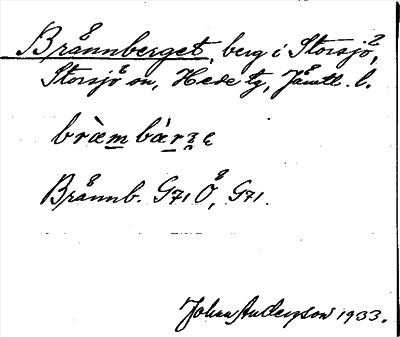 Brånnberget, berg i Storsjö,
Storsjö sn, Hede tg, Jämtl. l.
bràm bàrʒɛ
Brånnb. G71 Ö, G71.
Johan Anderson 1933.